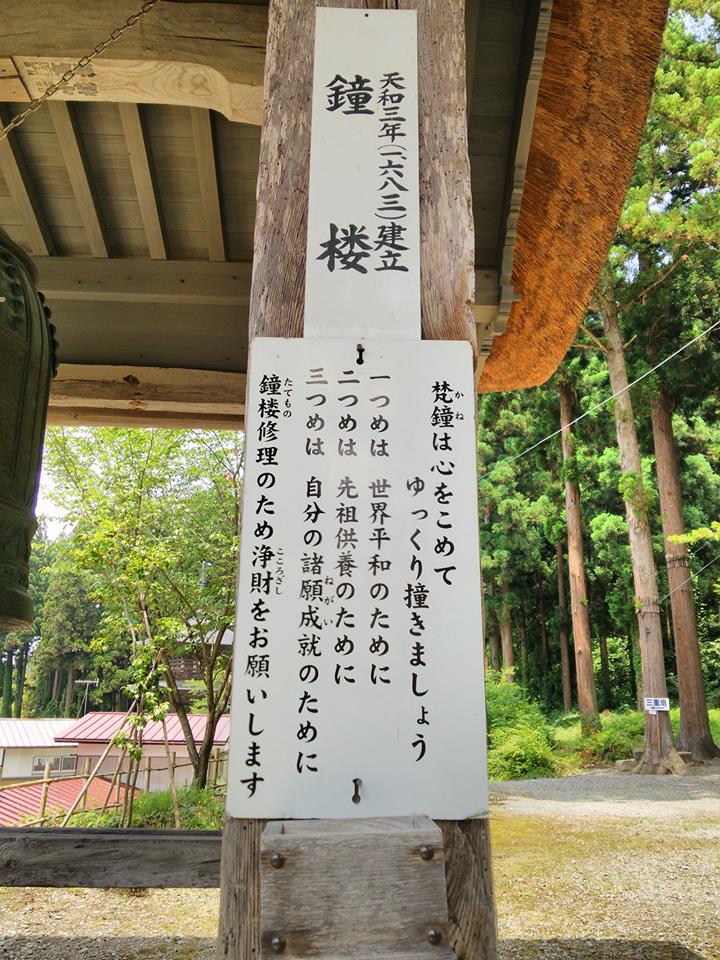 天和三年(一六八三)建立
鐘楼
梵鐘は心をこめて
かね
ゆっくり撞きましょう
一つめは 世界平和のために
二つめは 先祖供養のために
三つめは 自分の諸願成就のために
ねがい
鐘楼修理のため浄財をお願いします
たてもの
こころざし
三重塔